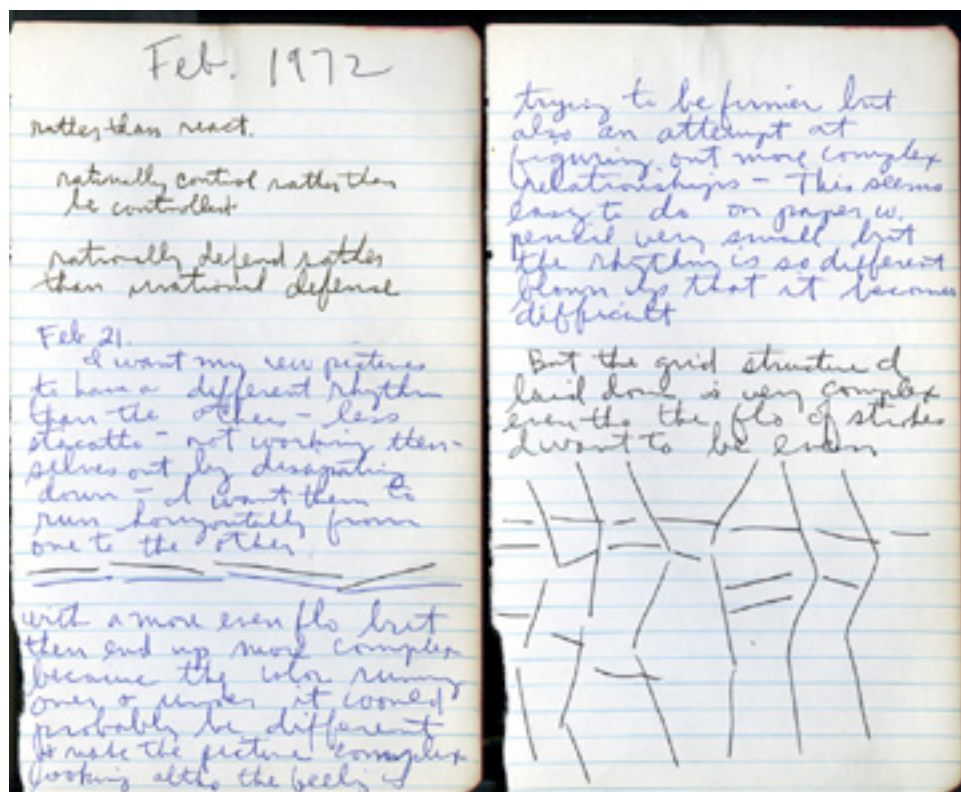 Feb. 1972
rather than react.
rationally control rather than
be controlled
rationally defend rather
than irrational defense
Feb. 21.
I want my new pictures
to have a different rhythm
than the others - less
stacatto - not working them-
selves out by
down - I want them to
run horizontally from
one to the other
with a more even flo but
then end up more complex
because the color running
over & under it would
probably be different
& make the picture complex
looking altho the feeling is
trying to be firmer but
also an attempt at
figuring out more complex
relationships - This seems
easy to do on paper w.
pencil very small but
the rhythm is so different
blown up that it becomes
difficult
But the grid structure I
laid down is very complex
even tho the flo of strokes
I want to be even